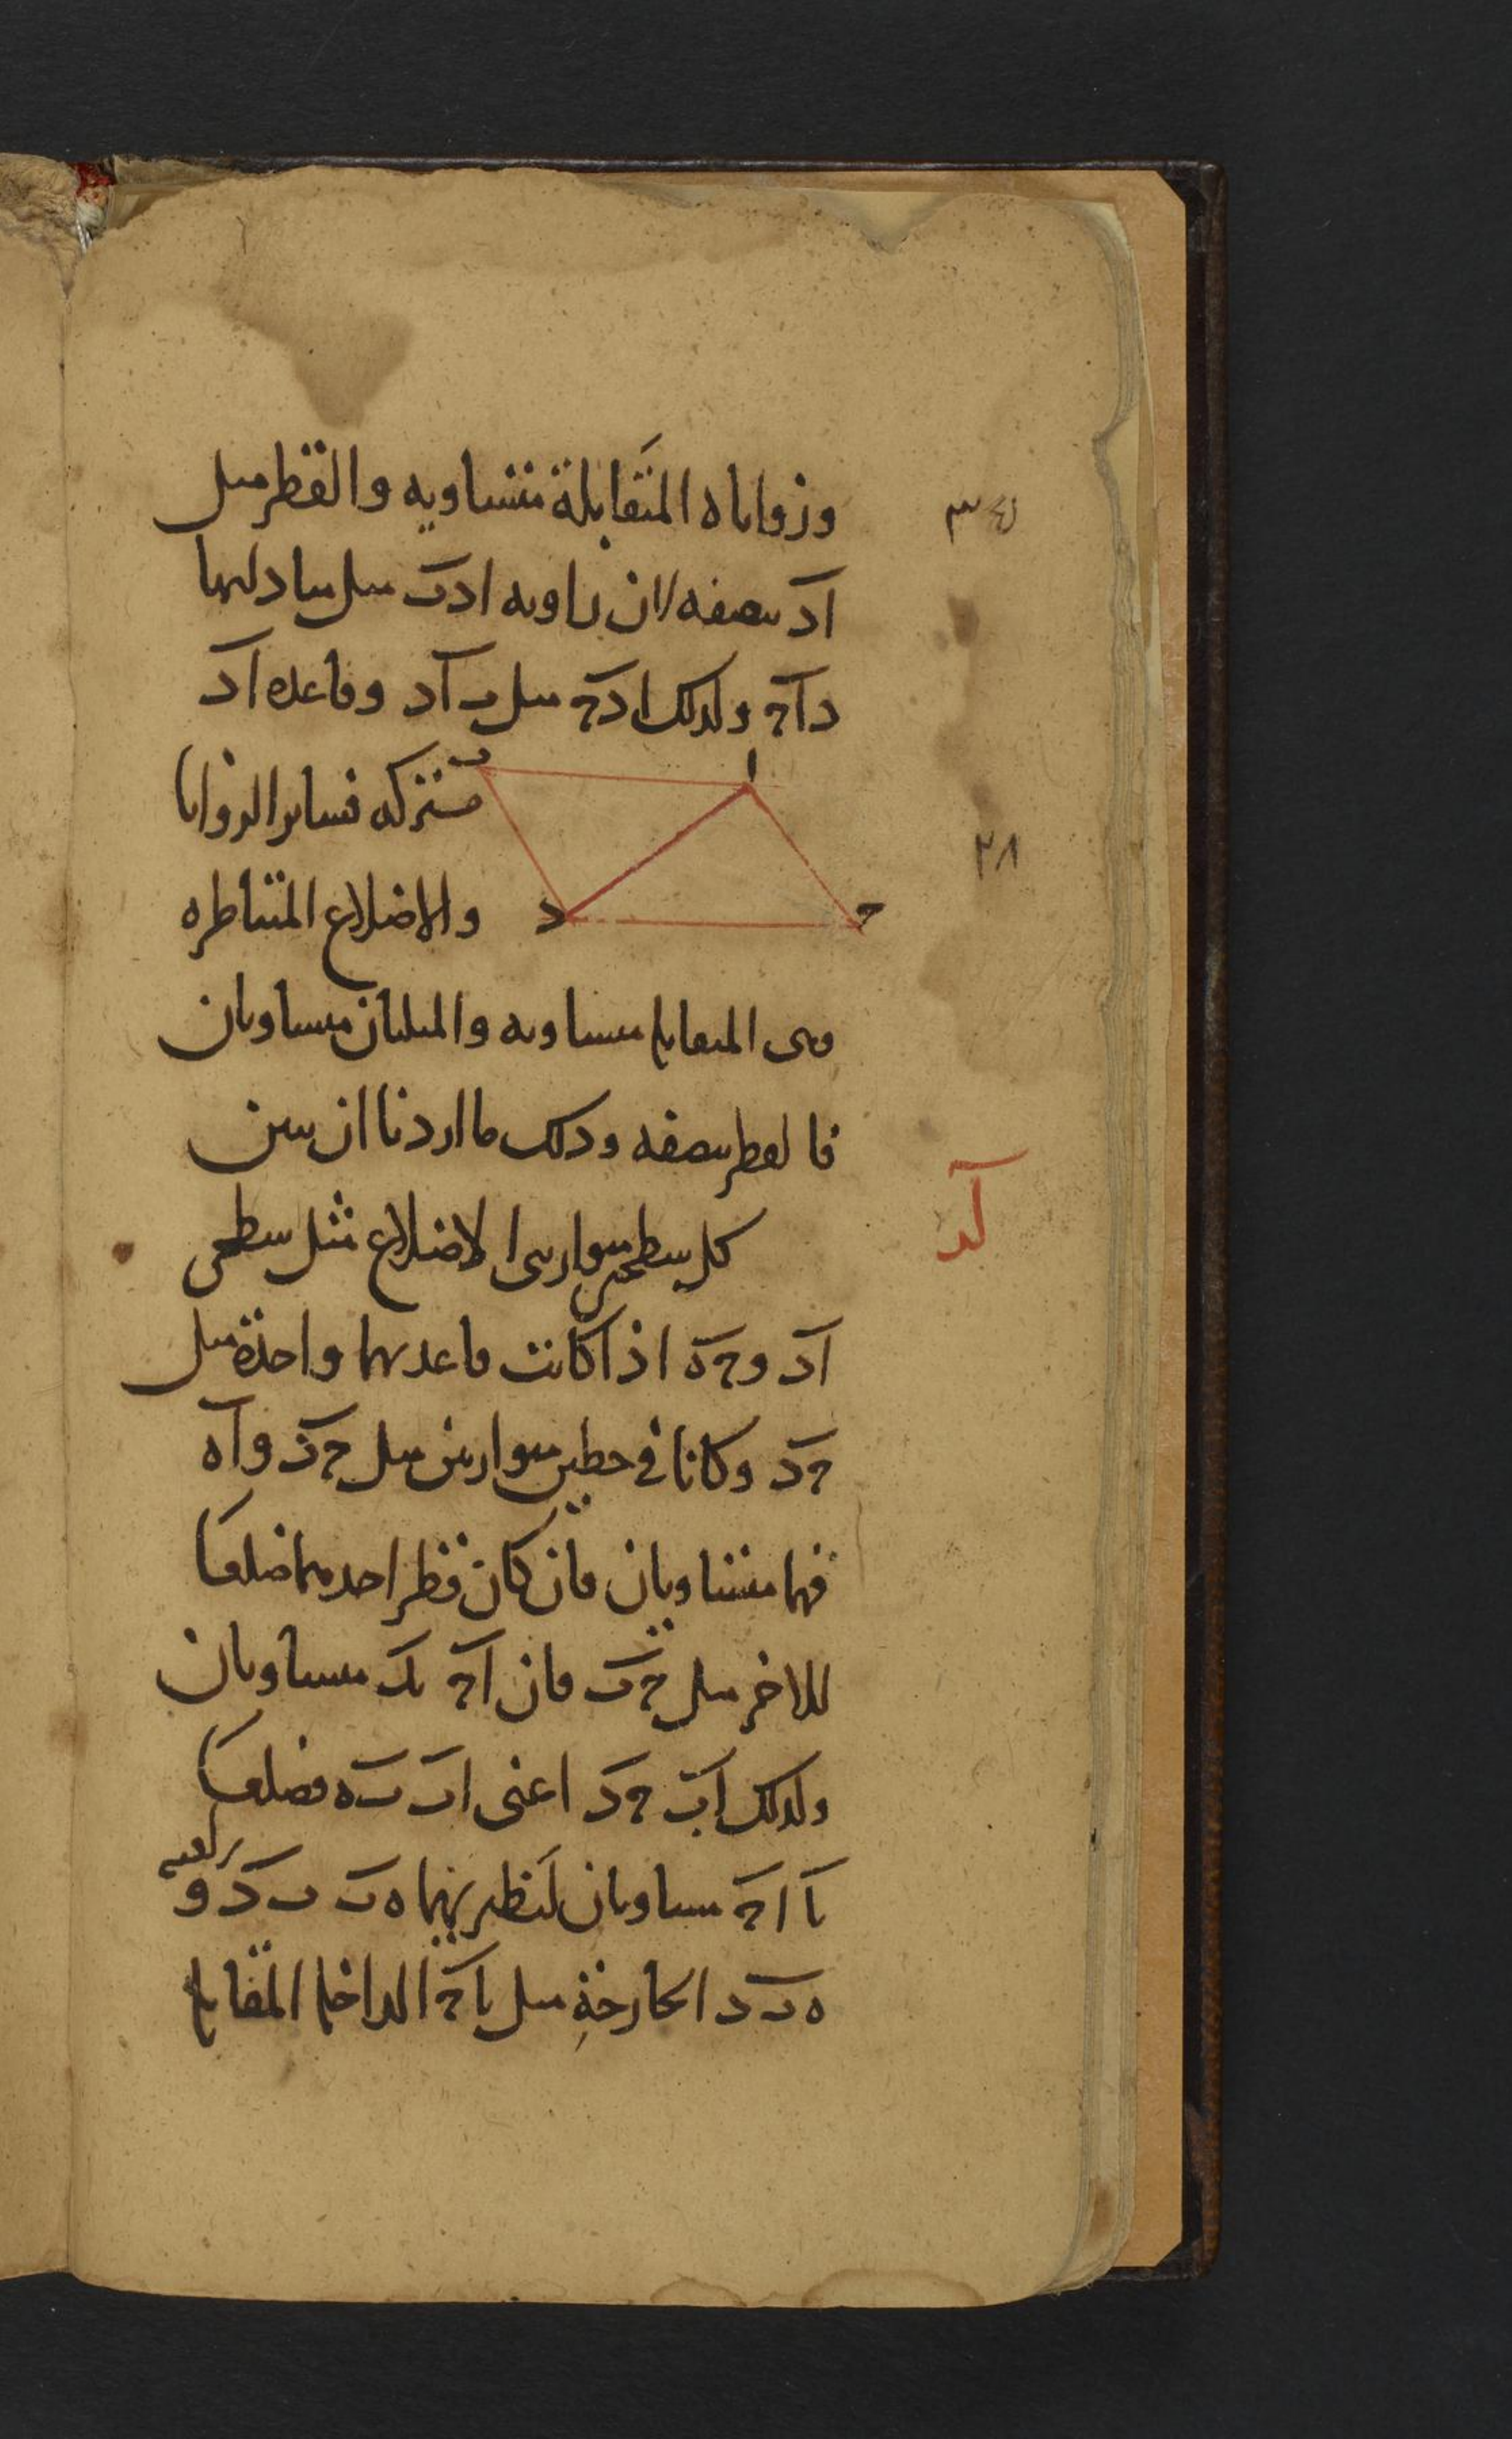 وزواياه المتقابلة متساويه والقطر مثل
اد ينصفه لان زاويه ادب مثل مبادلتها
داج ولذلك ادج مثل ب اد وقاعده اد
مشتركه فساير الزوايا
والاضلاع المتناظره
وهى المتقابله متساويه والمثلثان متساويان
فالقطر ينصفه وذلك ما اردنا ان نبين
كل سطحين متوازيى الاضلاع مثل سطحى
اد و ج ه اذا كانت قاعدتهما واحدة مثل
ج د وكانا فى خطين متوازيين مثل ج د و ا ه
فهما متساويان فان كان قطر احدهما ضلعا
للاخر مثل ج ب فان ا ج ب د متساويان
ولذلك اب ج د اعنى اب ب ه فضلعا
ب ا ا ج متساويان لنظيريهما ه ب ب د و
زاويه
ه ب د الخارجة مثل ب ا ج الداخله المقابله
ا
ب
ج
د
٣٤
٢٨
لد